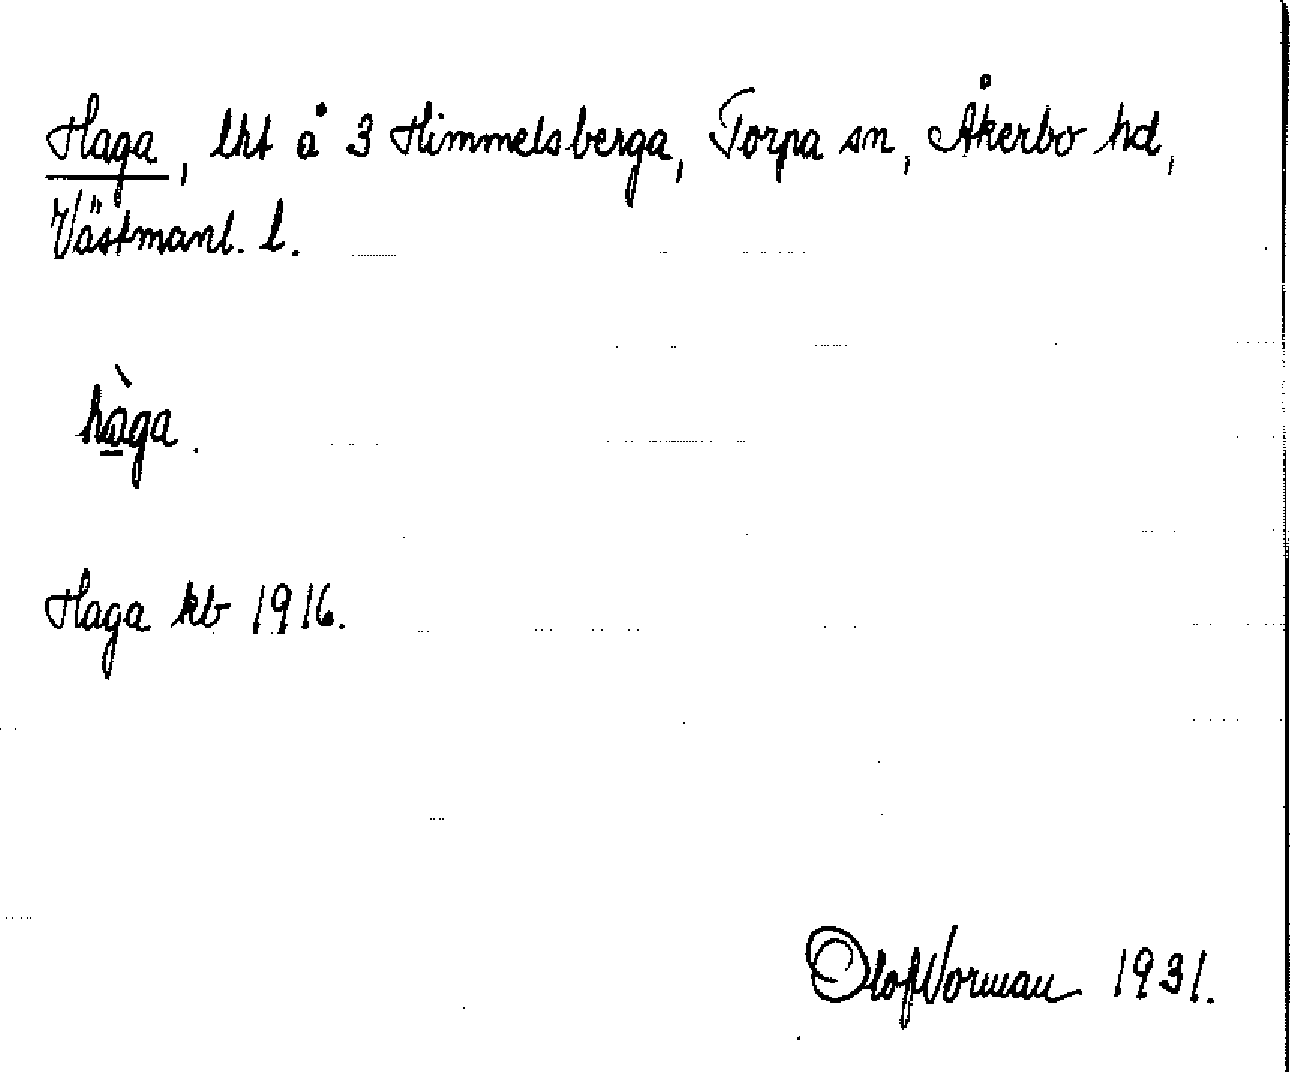 Haga, lht å 3 Himmelsberga, Torpa sn, Åkerbo hd,
Västmanl. l.
hàga.
Haga kb 1916.
Olof Norman 1931.